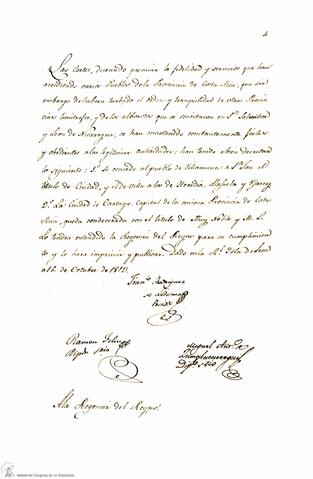 4
Las Cortes, deseando premiar la fidelidad y servicios que han
acreditado varios Pueblos de la Provincia de Costa-Rica, que sin
embargo de haberse turbado el orden y tranquilidad de otras Provin
cias limitrofes, y de los alborotos que se suscitaron en S.n Salvador
y Leon de Nicaragua, se han mostrado constantemente fieles
y obedientes a las legitimas autoridades; han tenido a bien decretar
lo siguiente: 1.o Se concede al pueblo de Villanueva de S.n José el
titulo de Ciudad, y el de villa a los de Heredia, Alajuela y Ujarraz
2.o La Ciudad de Cartago, capital de la misma Provincia de Costa
Rica, queda condecorada con el titulo de Muy Noble y M. L.
Lo tendra entendido la Regencia del Reyno para su cumplimien
to, y lo hara imprimir y publicar. Dado en la R.l Isla de Leon
a 16. de Octubre de 1813.
Fran.co Rodriguez
de Ledesma
Presid.te
Ramon Feliu
Dip.do Srio
Miguel Ant.o de
Zumalacarregui
Dip.do Srio
A la Regencia del Reyno.
Archivo del Congreso de los Diputados